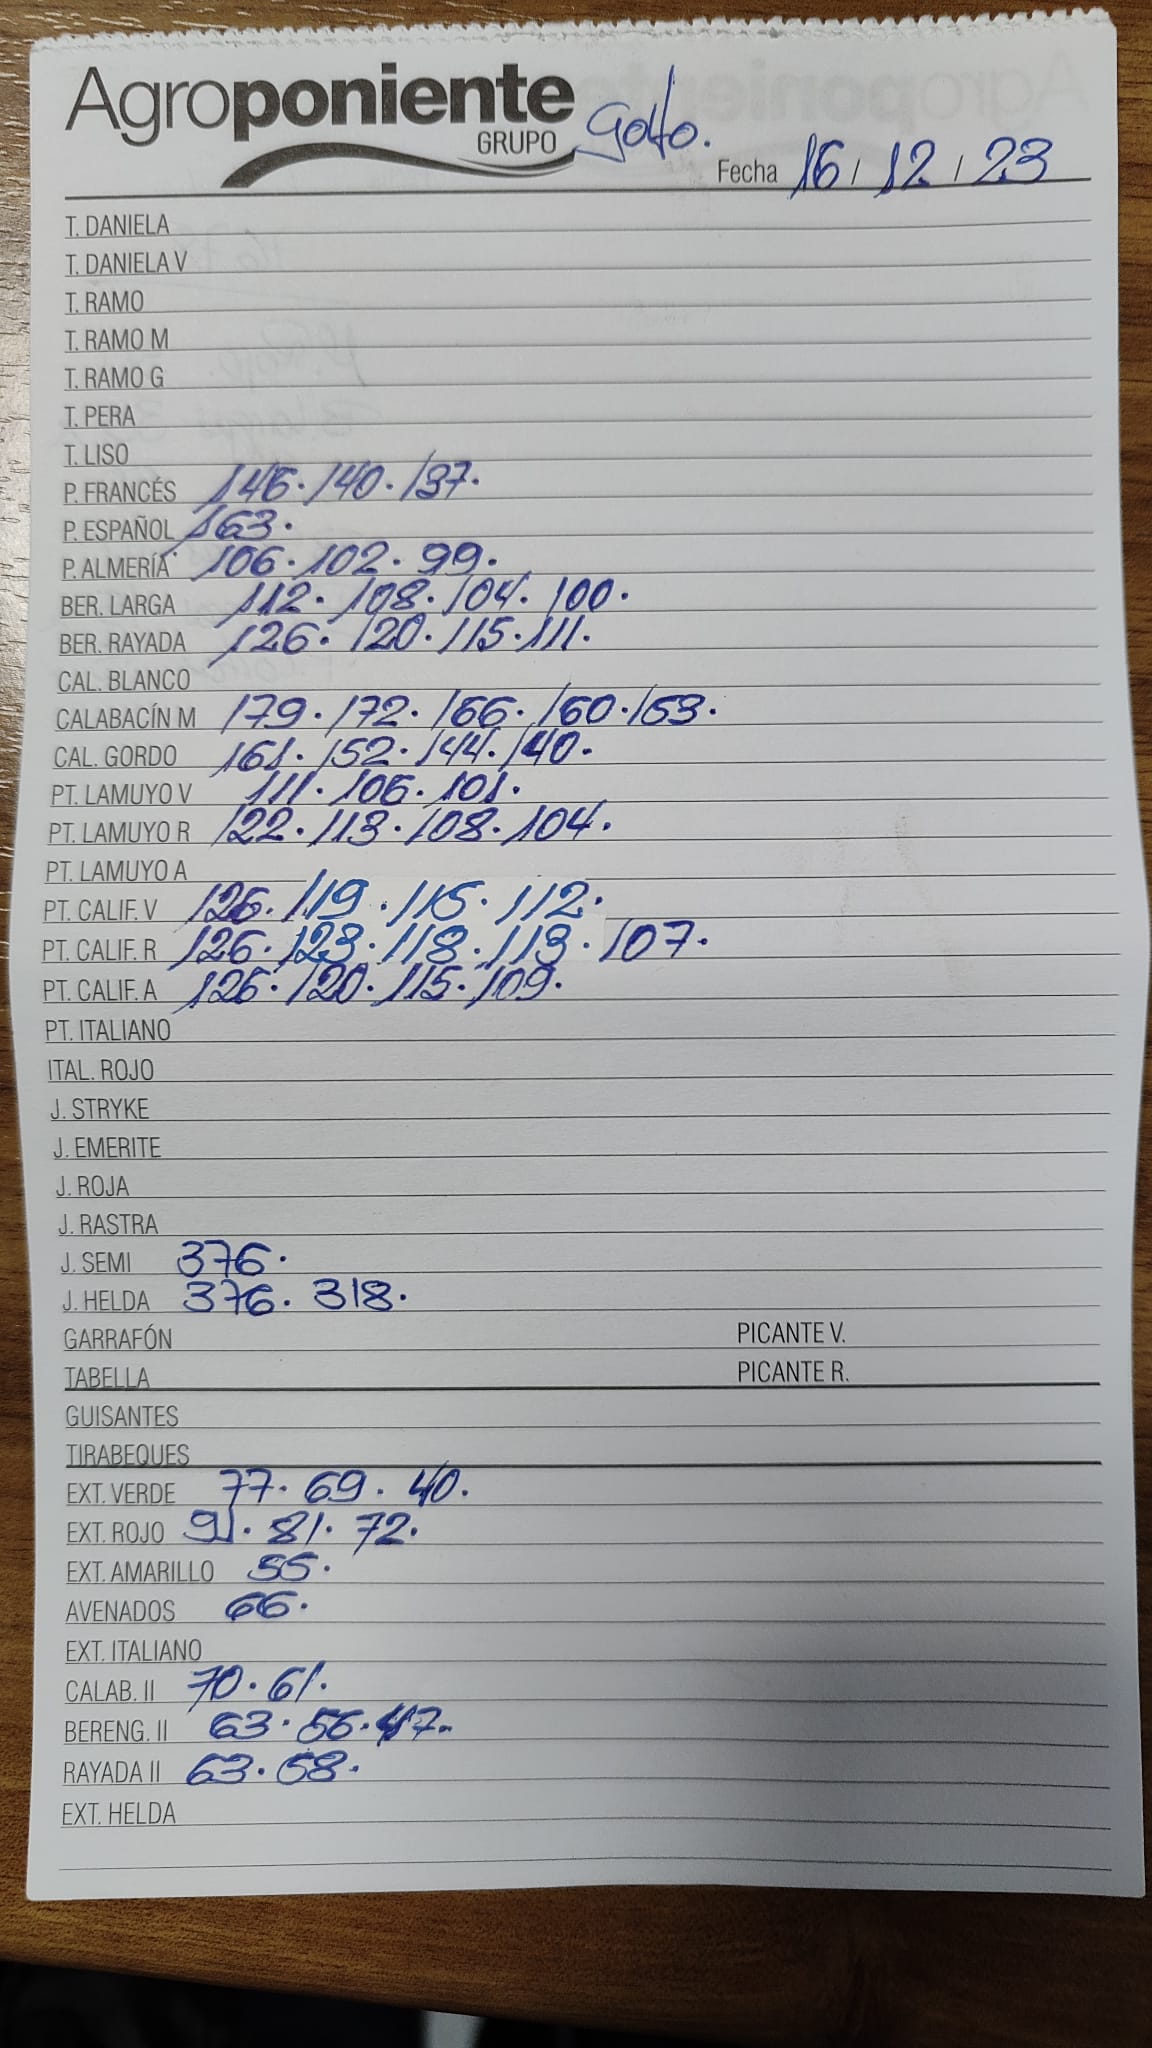 Agroponiente
GRUPO
Golfo.
Fecha 16 / 12 / 23
T. DANIELA
T. DANIELA V
T. RAMO
T. RAMO M
T. RAMO G
T. PERA
T. LISO
P. FRANCÉS 146. 140. 137.
P. ESPAÑOL 163.
P. ALMERÍA 106. 102. 99.
BER. LARGA 112. 108. 104. 100.
BER. RAYADA 126. 120. 115. 111.
CAL. BLANCO
CALABACÍN M 179. 172. 166. 160. 153.
CAL. GORDO 161. 152. 144. 140.
PT. LAMUYO V 111. 106. 101.
PT. LAMUYO R 122. 113. 108. 104.
PT. LAMUYO A
PT. CALIF. V 126. 119. 115. 112.
PT. CALIF. R 126. 123. 118. 113. 107.
PT. CALIF. A 126. 120. 115. 109.
PT. ITALIANO
ITAL. ROJO
J. STRYKE
J. EMERITE
J. ROJA
J. RASTRA
J. SEMI 376.
J. HELDA 376. 318.
GARRAFÓN PICANTE V.
TABELLA PICANTE R.
GUISANTES
TIRABEQUES
EXT. VERDE 77. 69. 40.
EXT. ROJO 91. 81. 72.
EXT. AMARILLO 55.
AVENADOS 66.
EXT. ITALIANO
CALAB. II 70. 61.
BERENG. II 63. 56. 47.
RAYADA II 63. 58.
EXT. HELDA